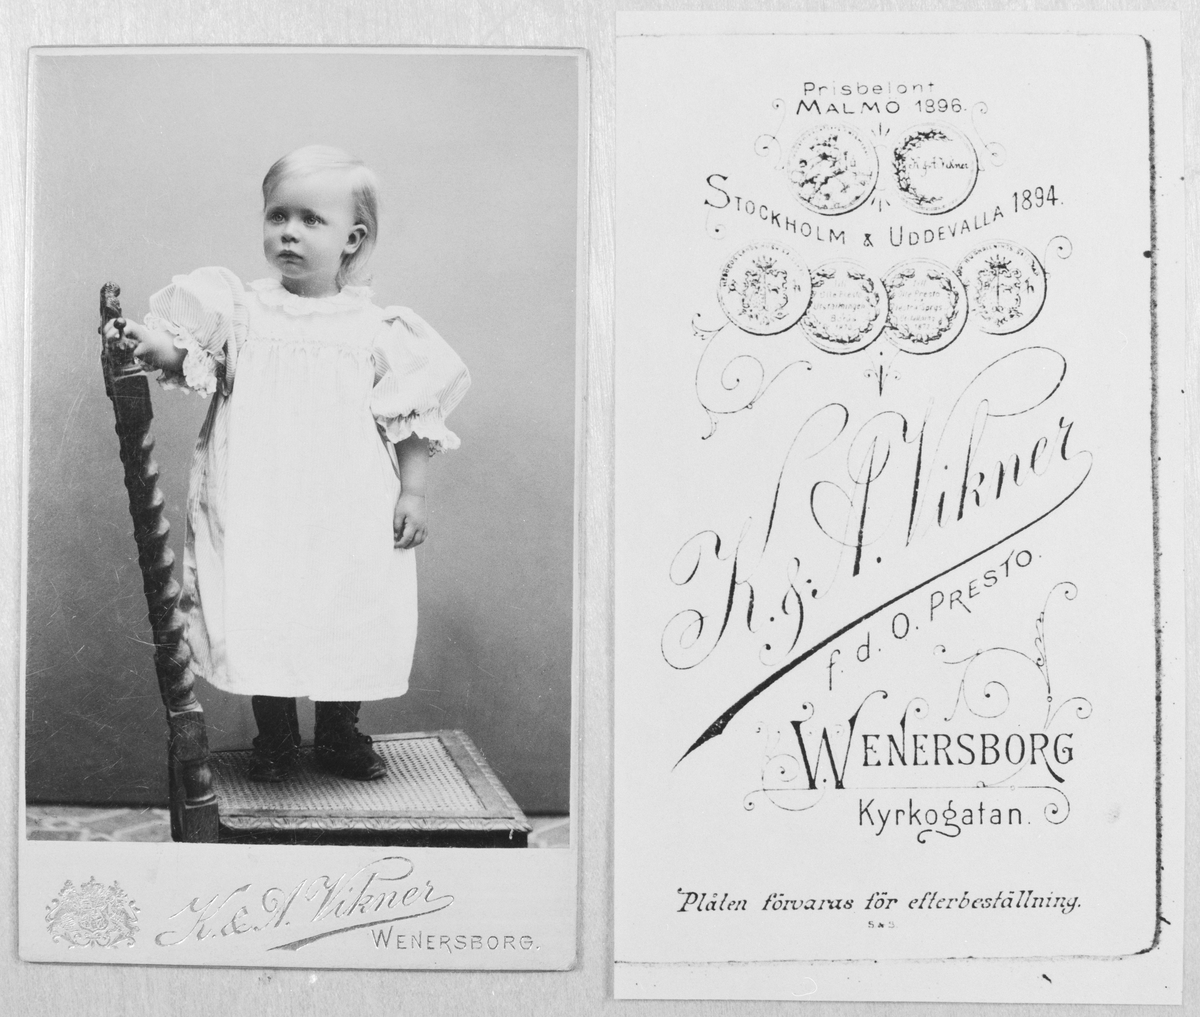 K. & A. Vikner
WENERSBORG.
Prisbelönt
MALMÖ 1896.
STOCKHOLM & UDDEVALLA 1894.
K. & A. Vikner
f. d. O. PRESTO.
WENERSBORG
Kyrkogatan.
Plåten förvaras för efterbeställning.